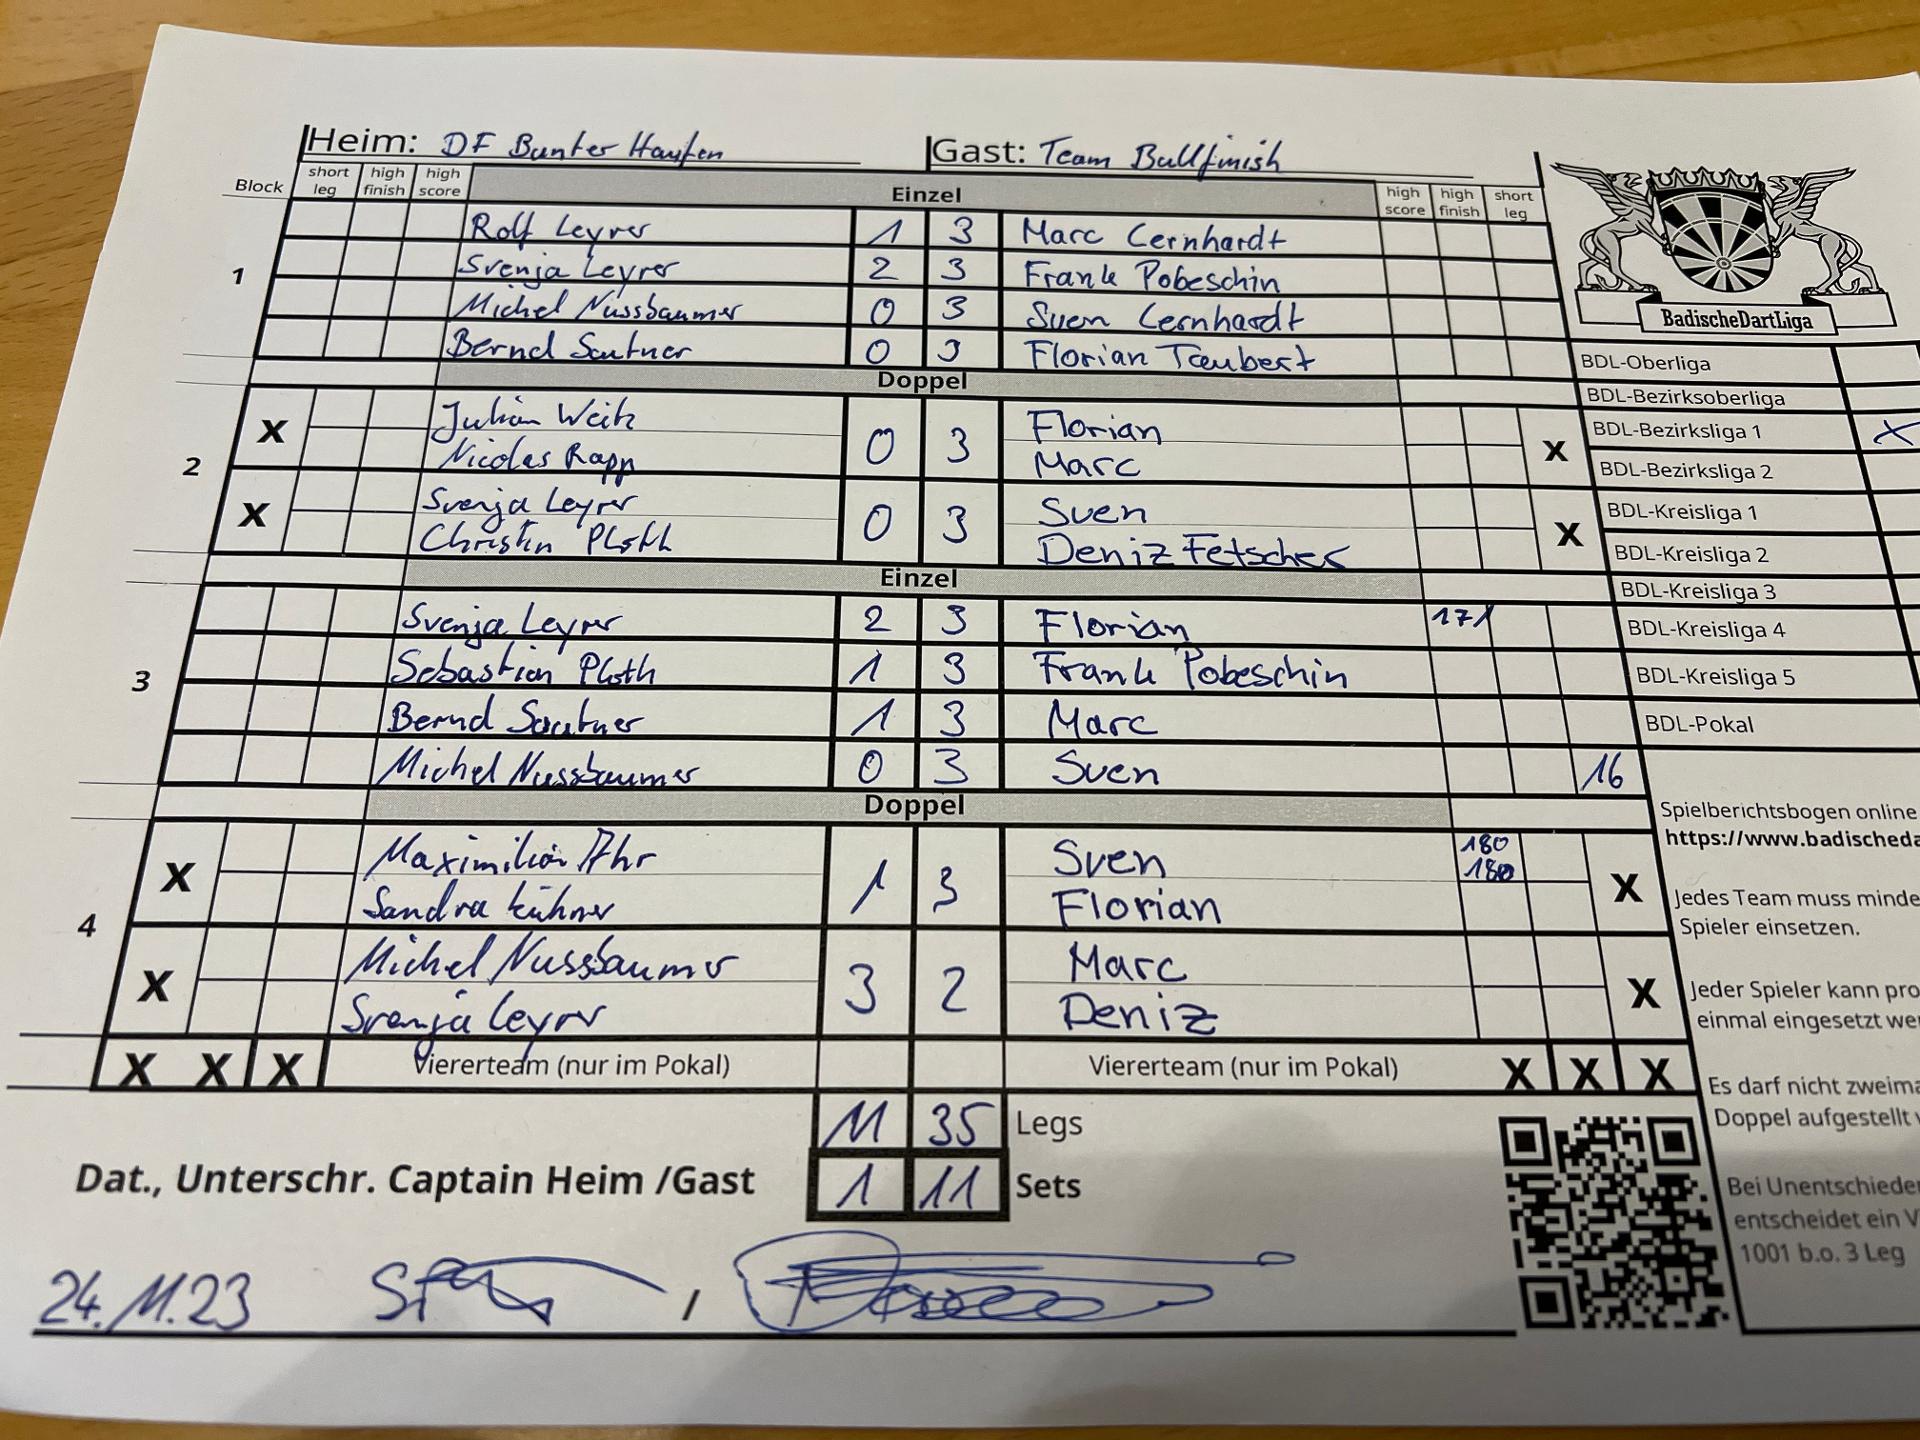 Heim: DF Bunter Haufen Gast: Team Bullfinish
Block short leg high finish high score Einzel high score high finish short leg
1
Rolf Leyrer 1 3 Marc Lernhardt
Svenja Leyrer 2 3 Frank Pobeschin
Michel Nussbaumer 0 3 Sven Lernhardt
Bernd Sautner 0 3 Florian Taubert
Doppel
2
X Julian Weik 0 3 Florian X
Nicolas Rapp Marc
X Svenja Leyrer 0 3 Sven X
Christin Ploth Deniz Fetscher
Einzel
3
Svenja Leyrer 2 3 Florian 171
Sebastian Ploth 1 3 Frank Pobeschin
Bernd Sautner 1 3 Marc
Michel Nussbaumer 0 3 Sven 16
Doppel
4
X Maximilian Ahr 1 3 Sven 180 X
Sandra Kühner Florian 180
X Michel Nussbaumer 3 2 Marc X
Svenja Leyrer Deniz
X X X Vierterteam (nur im Pokal) Viererteam (nur im Pokal) X X X
11 35 Legs
Dat., Unterschr. Captain Heim /Gast 1 11 Sets
24.11.23 /
BadischeDartLiga
BDL-Oberliga
BDL-Bezirksoberliga
BDL-Bezirksliga 1 X
BDL-Bezirksliga 2
BDL-Kreisliga 1
BDL-Kreisliga 2
BDL-Kreisliga 3
BDL-Kreisliga 4
BDL-Kreisliga 5
BDL-Pokal
Spielberichtsbogen online
https://www.badischeda
Jedes Team muss minde
Spieler einsetzen.
Jeder Spieler kann pro
einmal eingesetzt we
Es darf nicht zweima
Doppel aufgestellt
Bei Unentschieden
entscheidet ein V
1001 b.o. 3 Leg